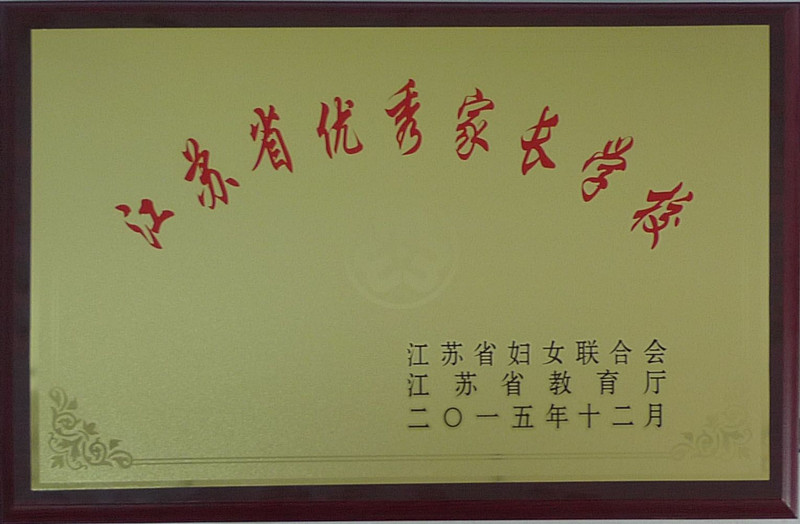 江苏省优秀家长学校
江苏省妇女联合会
江苏省教育厅
二〇一五年十二月